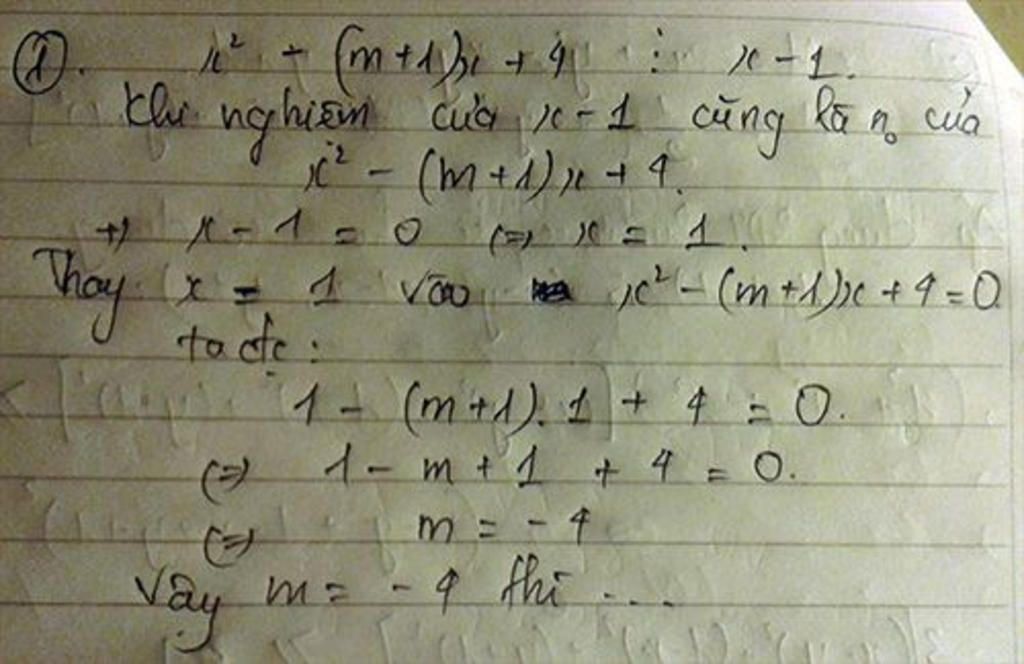 ①. x² - (m+1)x + 4 ⋮ x - 1.
Khi nghiệm của x - 1 cũng là n₀ của
x² - (m+1)x + 4.
+) x - 1 = 0 (=) x = 1.
Thay x = 1 vào x² - (m+1)x + 4 = 0
ta đc:
1 - (m+1). 1 + 4 = 0.
(=) 1 - m + 1 + 4 = 0.
(=) m = - 4
Vậy m = - 4 thì ....